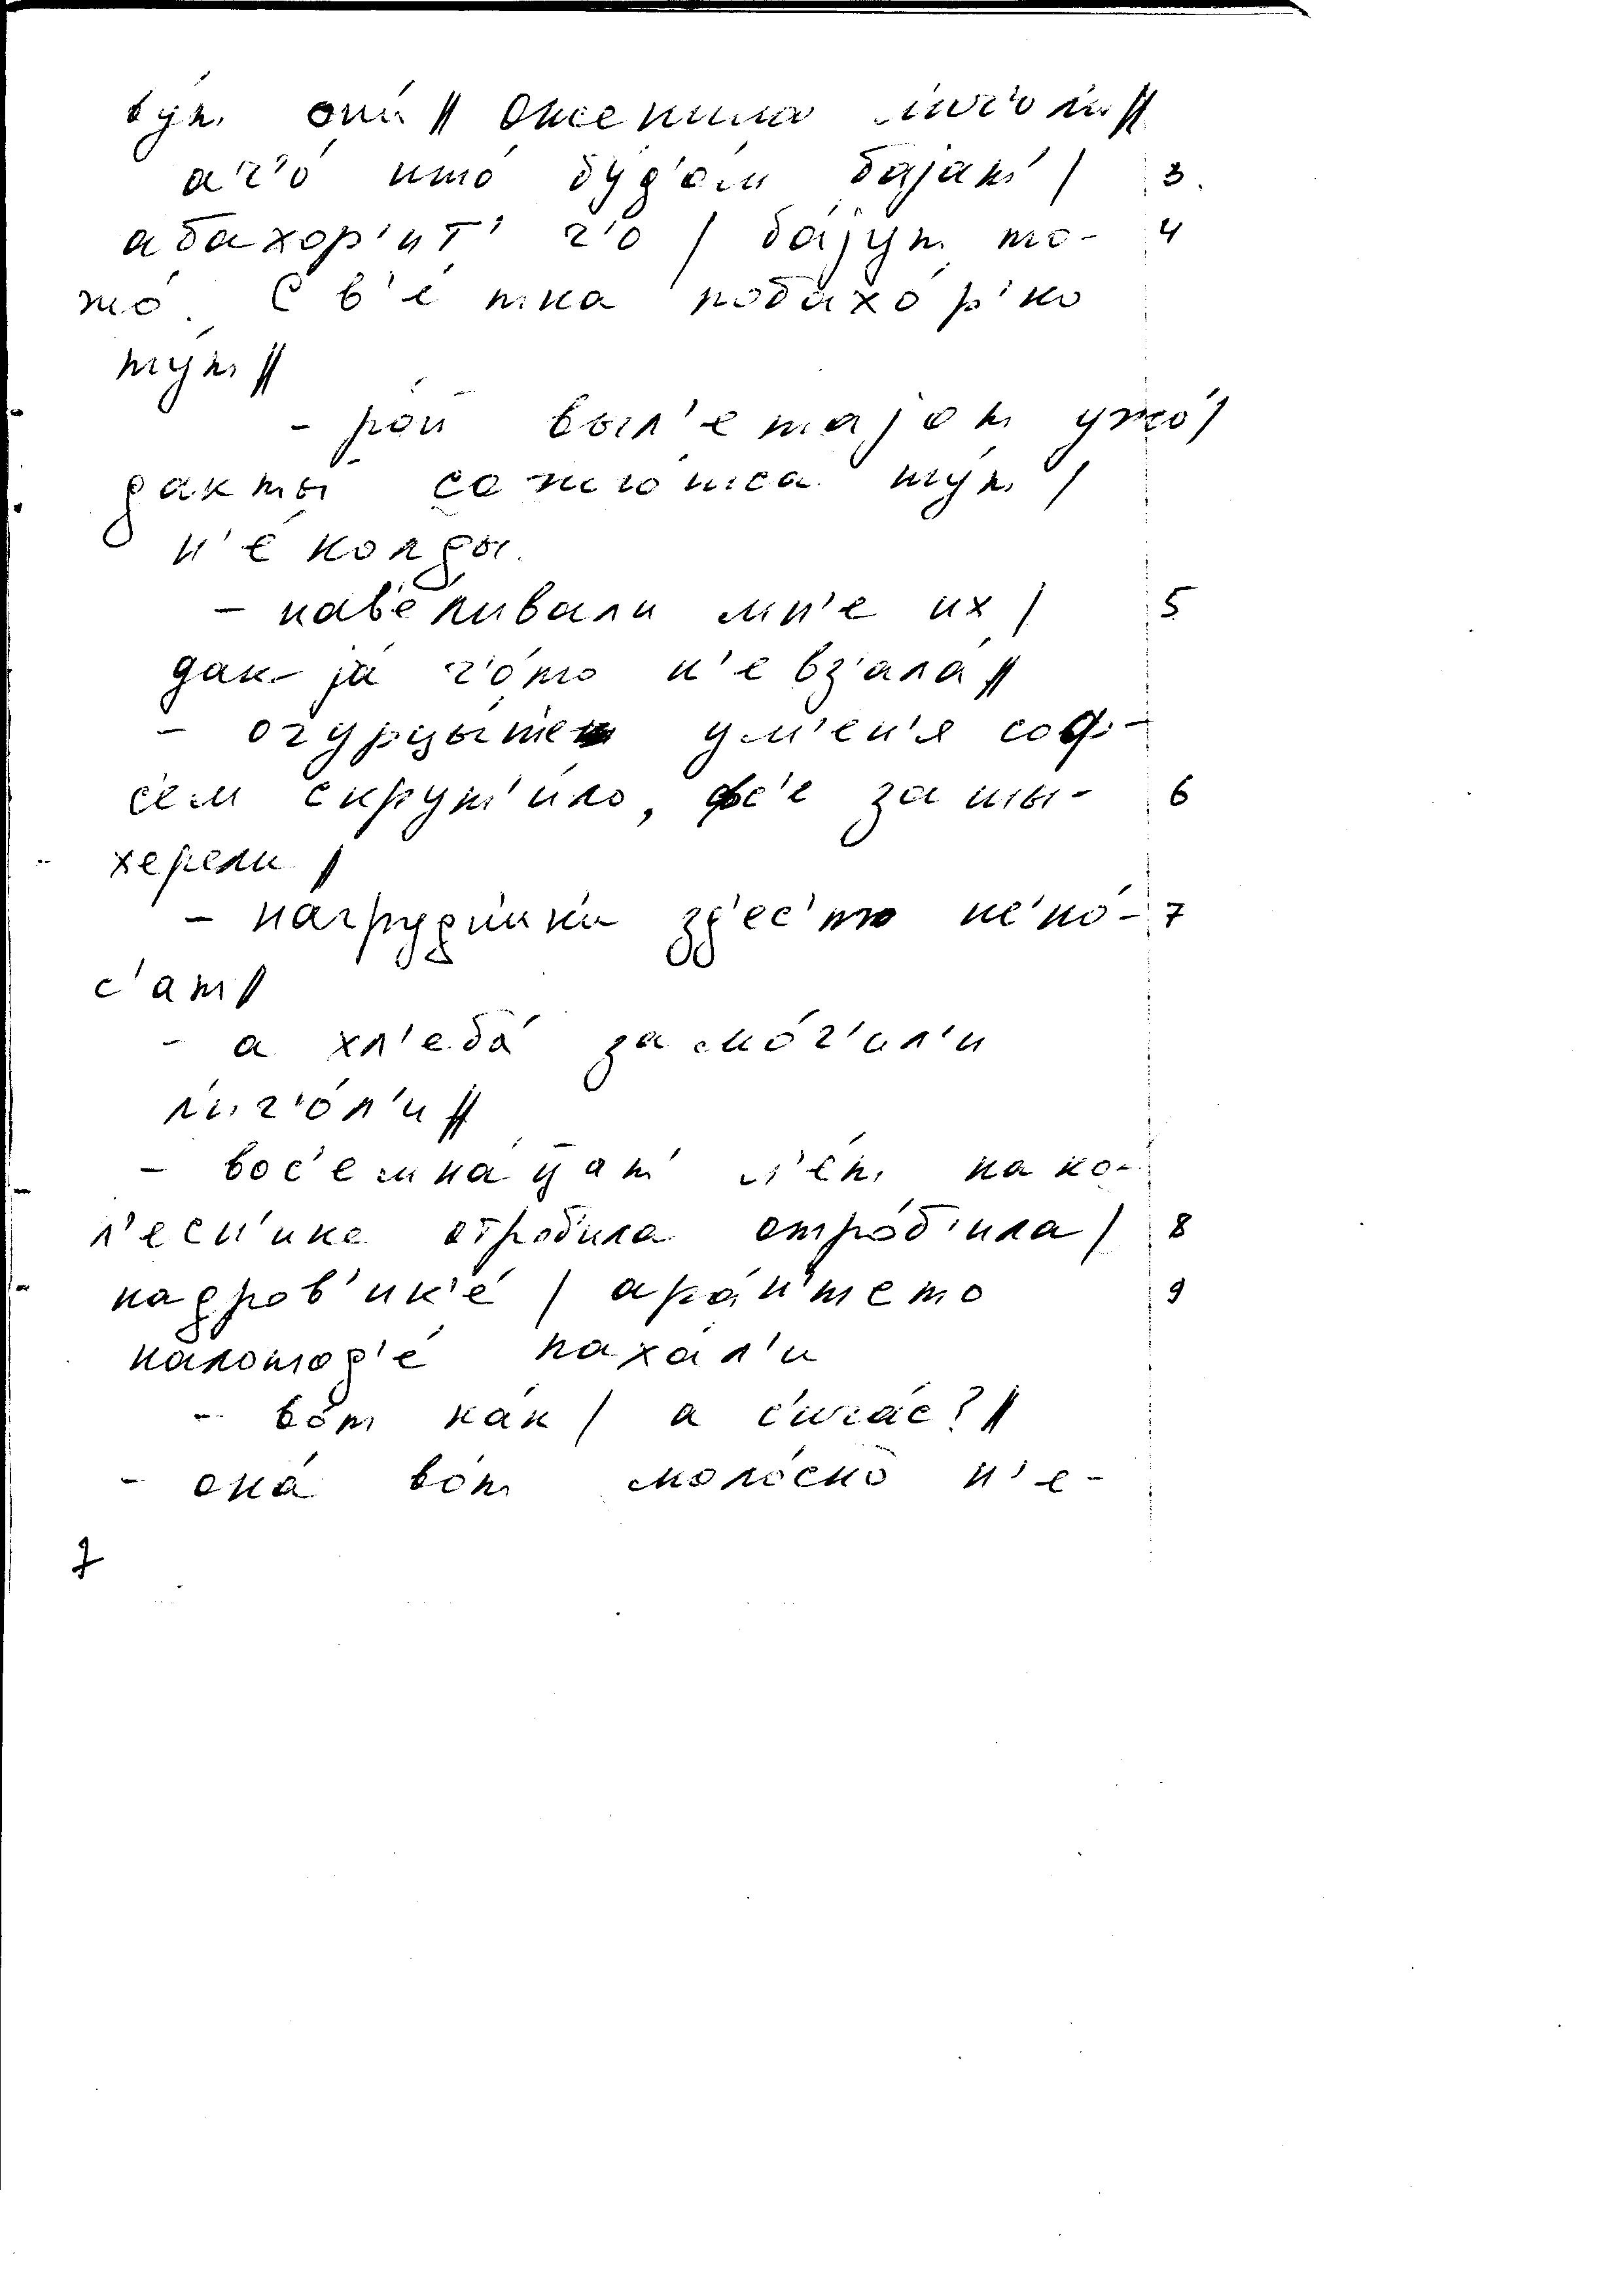 ву́т он'и́ // Ожени́ла л'иг'о́ли //
а г'о́ што́ бу́д'ом ба́јат' / 3.
а бахо́р'ит' г'о / ба́јут то- 4
жо́. С в'е́ тка побахо́р'ко
ту́т //
- ро́й выл'ета́јот ужо́ /
дак ты́ сажго́тса ту́т /
н'е́ колды.
- нав'е́ливали мн'е их / 5
дак ја́ г'о́то н'е вз'ала́ //
- огурцы́те у м'ен'я соф-
с'ем скрут'и́ло, фс'е заты- 6
херели //
- нагру́дн'ики зд'ес'то не'но́- 7
с'ат //
- а хл'еба́ замо́г'ил'и
л'иг'о́л'и //
- вос'емна́ц̄ат' л'е́т на ко-
л'есн'ике отробила отро́б'ила / 8
на дров'ик'е́ / а ра́н'ш̄е то 9
на лошод'е́ паха́л'и
- во́т ка́к / а с'ича́с? //
- она́ во́т моло́снō н'е-
7